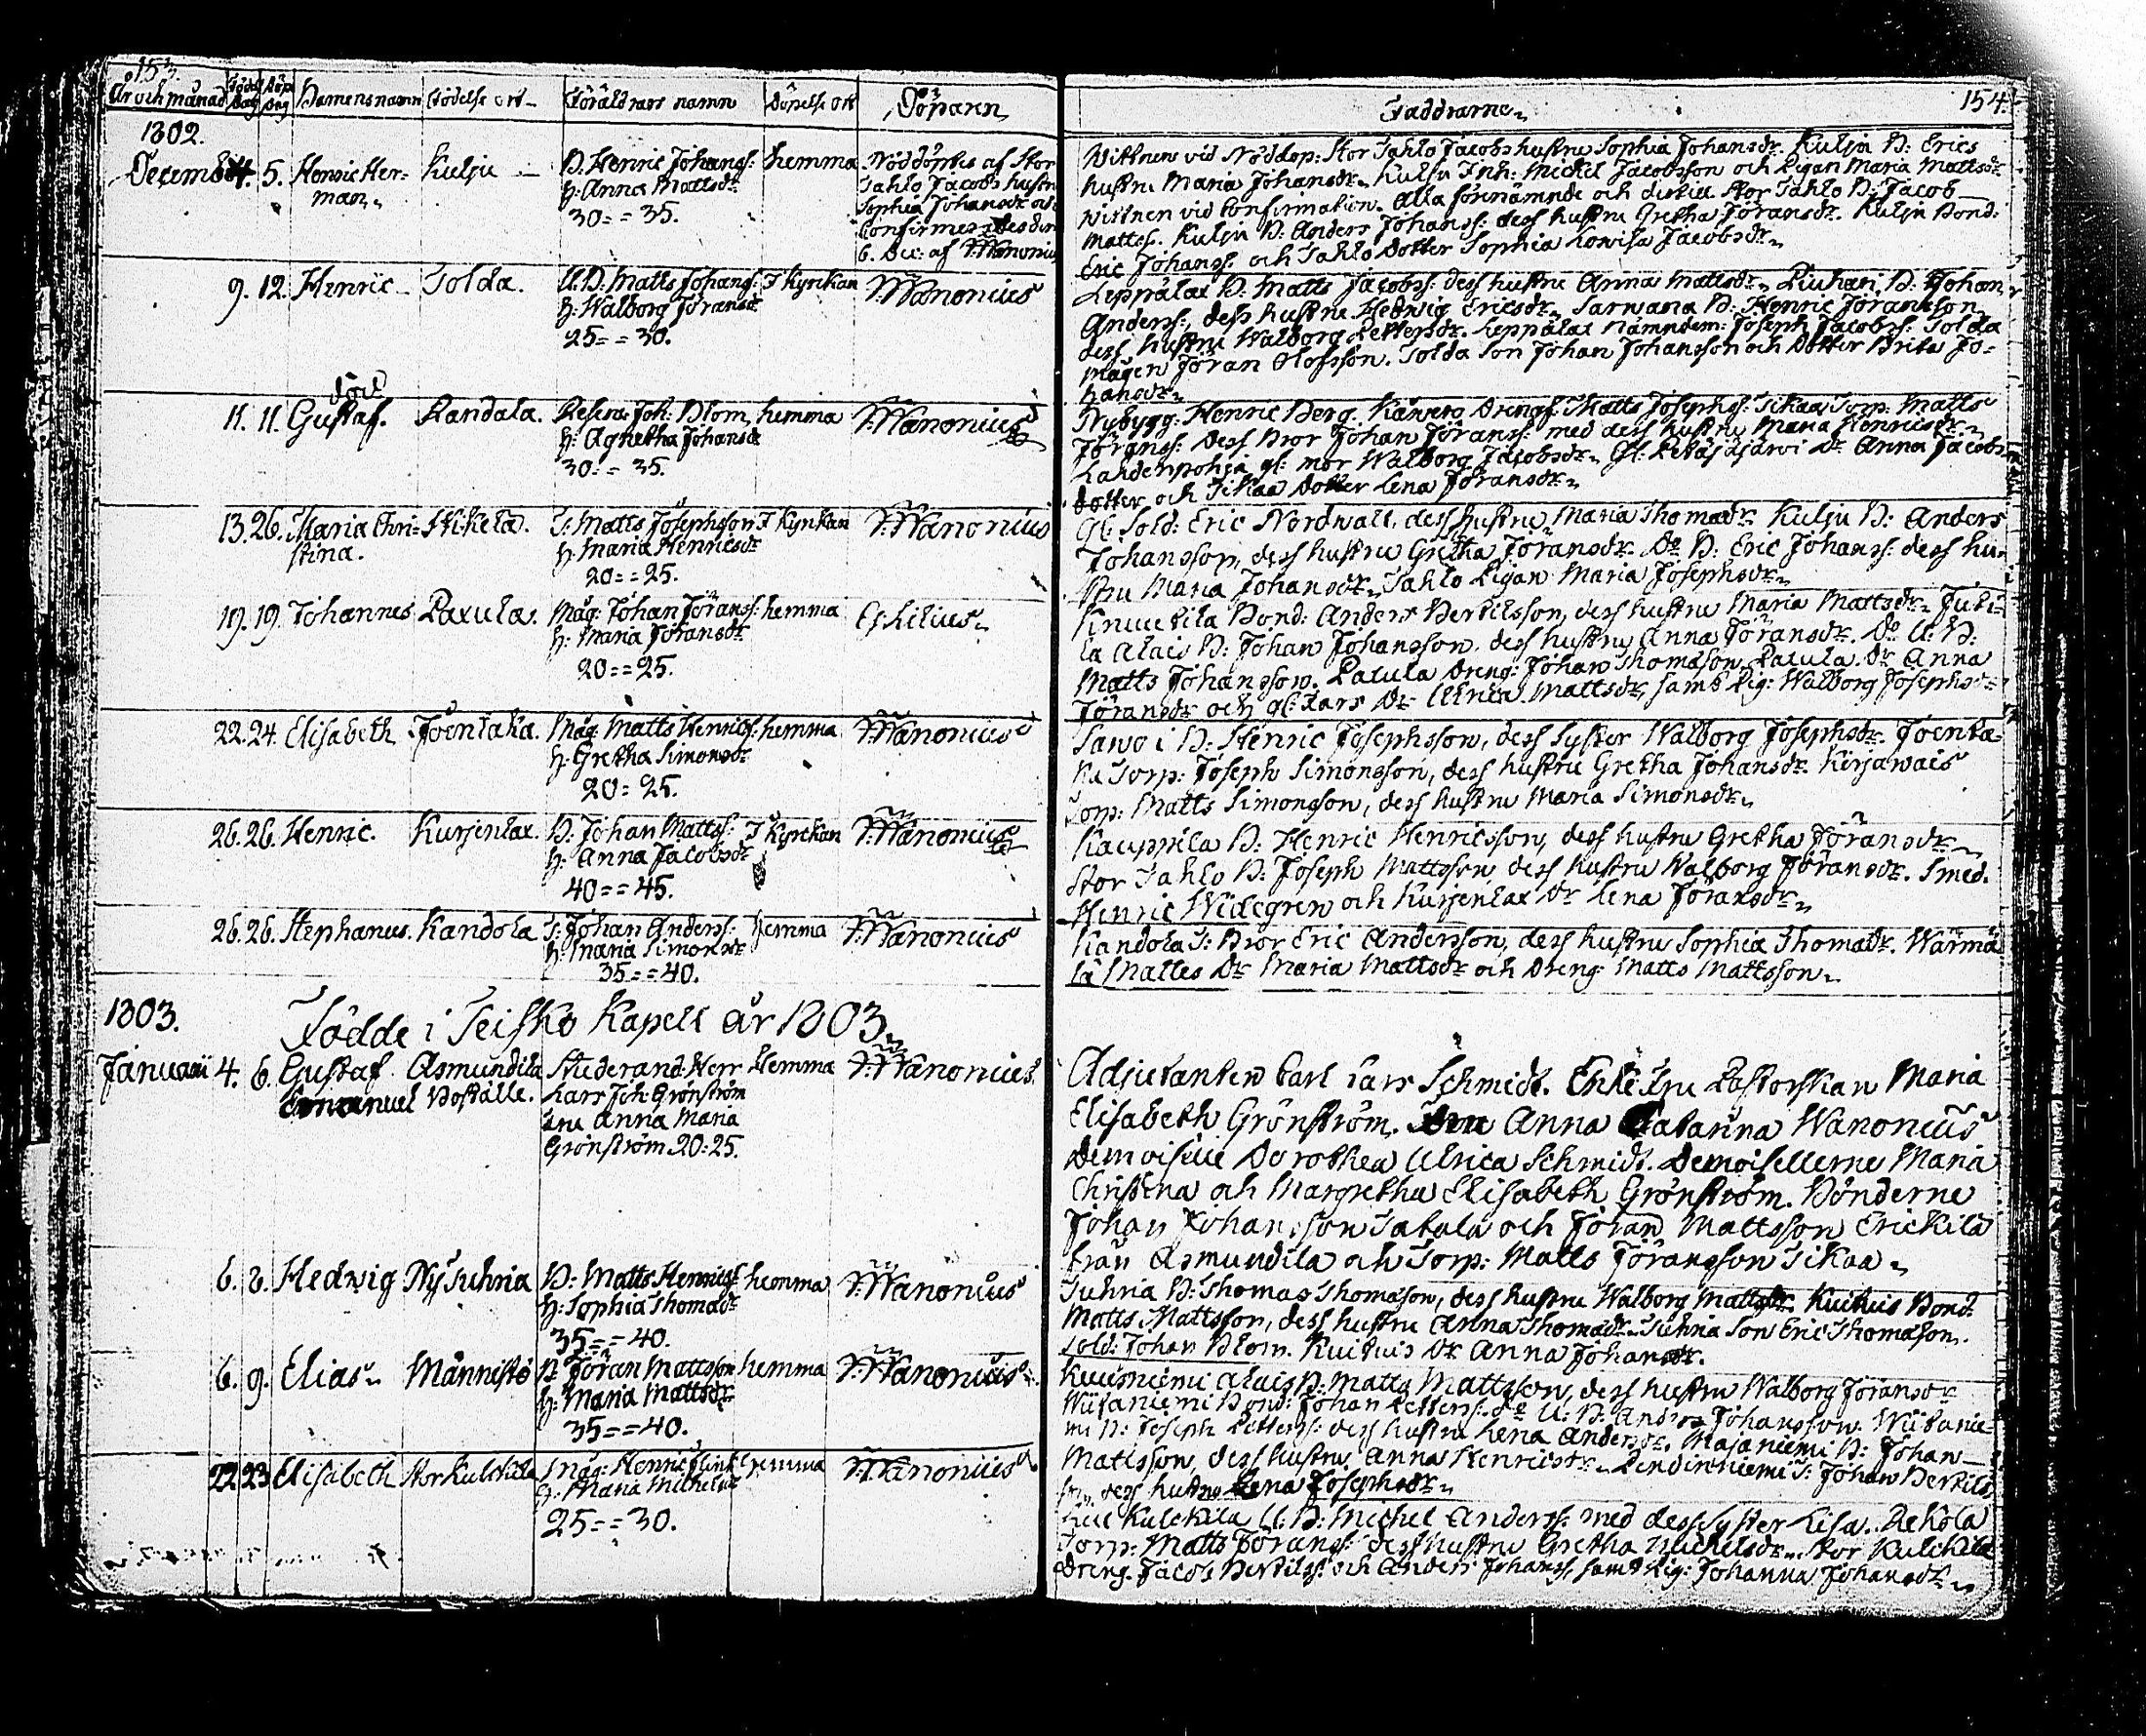 153.
År och månad Födel: Dag Döp: Dag Barnens namn Födelse ort Föräldrars namn Döpelse ort Döparn
1802.
December 4. 5. Henric Her= Kulju B. Henric Johanss: hemma Nöddöptes af Stor
man H: Anna Mattsdr Tahlo Jacobs hustru
30 = = 35. Sophia Johansdr och
Confirmerades den
6. Dec: af Wanonius
9. 12. Henric Tolda. U.B. Matts Johanss: I Kyrkan Wanonius
H: Walborg Jöransdr
25 = = 30.
död
11. 11. Gustaf. Randala. Reserv. Joh: Blom hemma Wanonius
H: Agnetha Johansdr
30 = = 35.
13. 26. Maria Chri= Hikelä. T: Matts Josephsson I Kyrkan Wanonius
stina. H: Maria Henricsdr
20 = = 25.
19. 19. Johannes Paxula. Måg: Johan Jöranss: hemma
H: Maria Jöransdr
20 = = 25.
22. 24. Elisabeth Joentaka. Måg: Matts Henricss: hemma Wanonius
H: Gretha Simonsdr
20 = 25.
26. 26. Henric. Kurjenlax. B: Johan Mattss: I Kyrkan Wanonius
H: Anna Jacobsdr
40 = = 45.
26. 26. Stephanus. Kandola T: Johan Anderss: hemma Wanonius
H: Maria Simonsdr
35 = = 40.
1803. Födde i Teisko Kapell år 1803.
Januarii 4. 6. Gustaf Asmundila Studerand: Herr Hemma Wanonius.
Emanuel Boställe. Lars Joh: Grönström
Fru Anna Maria
Grönström 20 = 25.
6. 8. Hedwig Ny Juhria B: Matts Henricss: hemma Wanonius
H: Sophia Thomadr
35 = = 40.
6. 9. Elias Männistö B: Jöran Mattsson hemma Wanonius
H: Maria Mattsdr
35 = = 40.
22. 23. Elisabeth Stor Kulckila Måg: Henric Flink hemma Wanonius
H: Maria Michelsdr
25 = = 30.
Faddrarne 154.
Wittnen vid Nöddop: Stor Tahlo Jacobs hustru Sophia Johansdr. Kulju B: Erics
hustru Maria Johansdr. Kulju Inh: Michel Jacobsson och Pigan Maria Mattsdr
wittnen vid Confirmation. Alla förenämnde och Stor Tahlo B: Jacob
Mattss. Kulju B: Anders Johanss: dess hustru Gretha Jöransdr. Kulju Bond:
Eric Johanss. och Tahlo Dotter Sophia Lowisa Jacobsdr
Leppälax B: Matts Jacobss: dess hustru Anna Mattsdr. B: Johan
Anderss: dess hustru Hedwig Ericsdr. Sarwana B: Henric Jöransson
dess hustru Walborg Pettersdr. Leppälax Nämndem: Joseph Jacobss: Tolda
Mågen Jöran Olofsson. Tolda Son Johan Johansson och Dotter Brita Jo=
hansdr
Nybygg: Henric Berg. Dreng: Matts Josephss: Sikaa Torp: Matts
Jöranss: Dess Bror Johan Jöranss: med dess hustru Maria Henricsdr
Lahdenpohja gl: mor Walborg Jacobsdr. Gl: Anna Jacobs
dotter och Sikaa Dotter Lena Jöransdr
Gl: Sold: Eric Nordwall, dess hustru Maria Thomadr. Kulju B: Anders
Johansson, dess hustru Gretha Jöransdr. Do B: Eric Johanss: dess hu=
stru Maria Johansdr. Tahlo Pigan Maria Josephsdr
Bond: Anders Bertilsson, dess hustru Maria Mattsdr.
la Alais B: Johan Johansson, dess hustru Anna Jöransdr. Do U: B:
Matts Johansson. Paxula Dreng: Johan Thomasson. Paxula Dr Anna
Jöransdr och gl: Lars Dr Ulrica Mattsdr, samt Pig: Walborg Josephsdr
Sawo i B: Henric Josephsson, dess Syster Walborg Josephsdr. Joenta=
ka Torp: Joseph Simonsson, dess hustru Gretha Johansdr. Kirjawais
Torp: Matts Simonsson, dess hustru Maria Simonsdr
Kauppila B: Henric Henricsson, dess hustru Gretha Jöransdr
Stor Tahlo B: Joseph Mattsson, dess hustru Walborg Jöransdr. Smed.
Henric Widegren och Kurjenlax Dr Lena Jöransdr
Kandola T: Bror Eric Andersson, dess hustru Sophia Thomadr. Wärmä
lä Mattes Dr Maria Mattsdr och Dreng: Matts Mattsson
Adjutanten Carl Lars Schmidt. Enke Fru Pastorskan Maria
Elisabeth Grönström. Fru Anna Catarina Wanonius
Demoiselle Dorothea Ulrica Schmidt. Demoisellerne Maria
Christina och Margretha Elisabeth Grönström. Bönderne
Johan Johansson Tabala och Jöran Mattsson Erickilä
från Asmundila och Torp: Matts Jöransson Sikaa
Juhria B: Thomas Thomasson, dess hustru Walborg Mattsdr. Kuituis Bond:
Matts Mattsson, dess hustru Anna Thomadr. Juhria Son Eric Thomasson.
Sold: Johan Blom. Kuituis Dr Anna Johansdr.
Kuusniemi Alais B: Matts Mattsson, dess hustru Walborg Jöransdr
Wiitaniemi Bond: Johan Petterss: Do U: B: Anders Johansson. Wiitanie=
mi B: Joseph Petterss: dess hustru Lena Andersdr. Majaniemi B: Johan
Mattsson, dess hustru Anna Henricsdr. T: Johan Bertils
son dess hustru Lena Josephsdr
Kulckila U: B: Michel Anderss: med dess Syster Lisa. Rekola
Torp: Matts Jöranss: dess hustru Gretha Michelsdr. Stor Kulckila
Dreng: Jacob Bertilss: och Anders Johanss, samt Pig: Johanna Johansdr